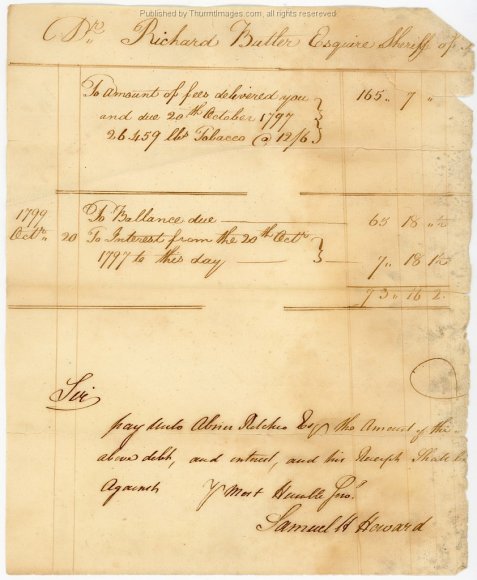 Published by ThurmtImages.com, all rights reserved
Drs. Richard Butler Esquire Sheriff of
To Amount of fees delivered you
and due 20th October 1797
26459 lbs Tobacco @ 12/6 165 " 7 "
1799
Octr. 20 To Ballance due 65 18 " 1/2
To Interest from the 20th Octr.
1797 to this day 7 " 18 1 1/2
73 " 16 2
Sir
pay unto Abner Esqr the Amount of the
above debt, and interest, and his Receipt Shall be
Against yr Most Humble
Samuel H Howard